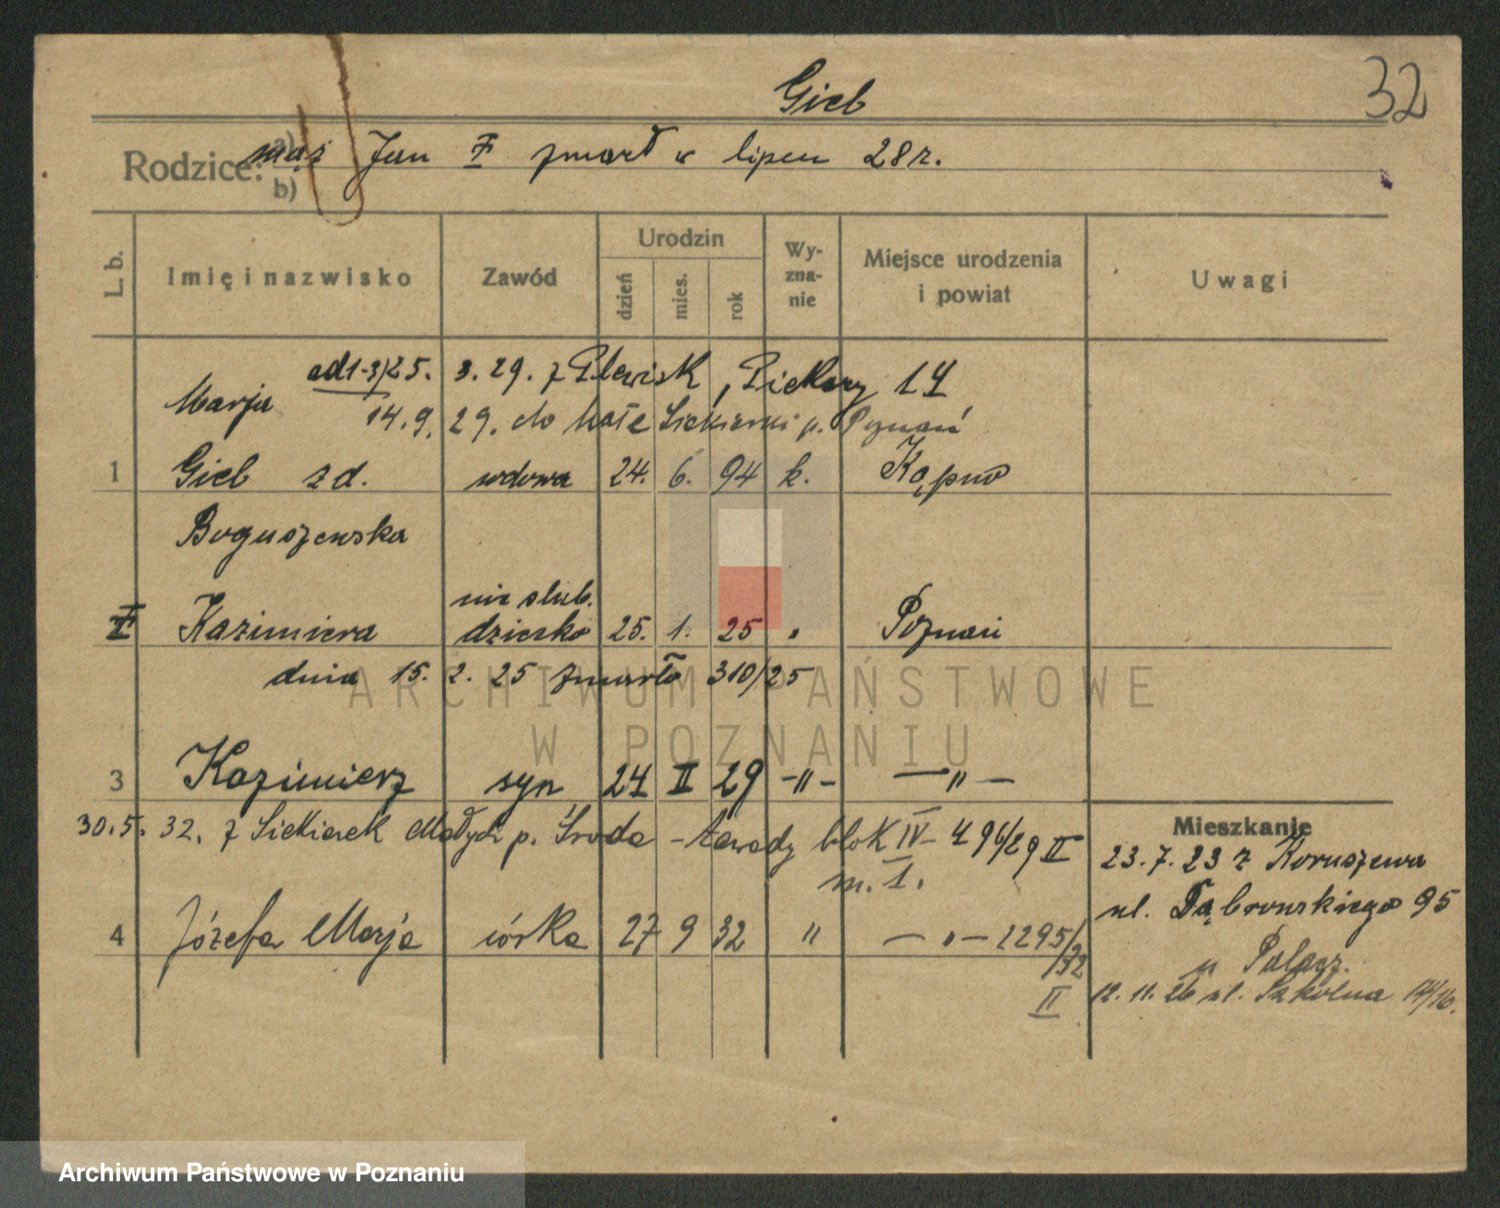 32
Gieb
Rodzice: a) mąż Jan zmarł w lipcu 28 r.
b)
L. b.
Imię i nazwisko
Zawód
Urodzin
dzień
mies.
rok
Wy-
zna-
nie
Miejsce urodzenia
i powiat
Uwagi
od 1-3/25. 3. 29. z Plewisk, Piekary 14
Marja 14. 9. 29. do Małe Siekierki p. Poznań
1 Gieb z d. wdowa 24. 6. 94 k. Kąpno
Boguszewska
nie ślub.
Kazimiera dziecko 25. 1. 25 " Poznań
dnia 15. 2. 25 zmarło 310/25
3 Kazimierz syn 24 II 29 -"- -"-
30. 5. 32. z Siekierek Małych p. Środa - Zawady blok IV - 496/29 II
m. 1.
4 Józefa Marja córka 27 9 32 " -"- 2295/32
II
Mieszkanie
23. 7. 23 z Koruszewa
ul. Dąbrowskiego 95
u Palacz.
12. 11. 26 ul. Szkolna 14/16.
ARCHIWUM PAŃSTWOWE
W POZNANIU
Archiwum Państwowe w Poznaniu